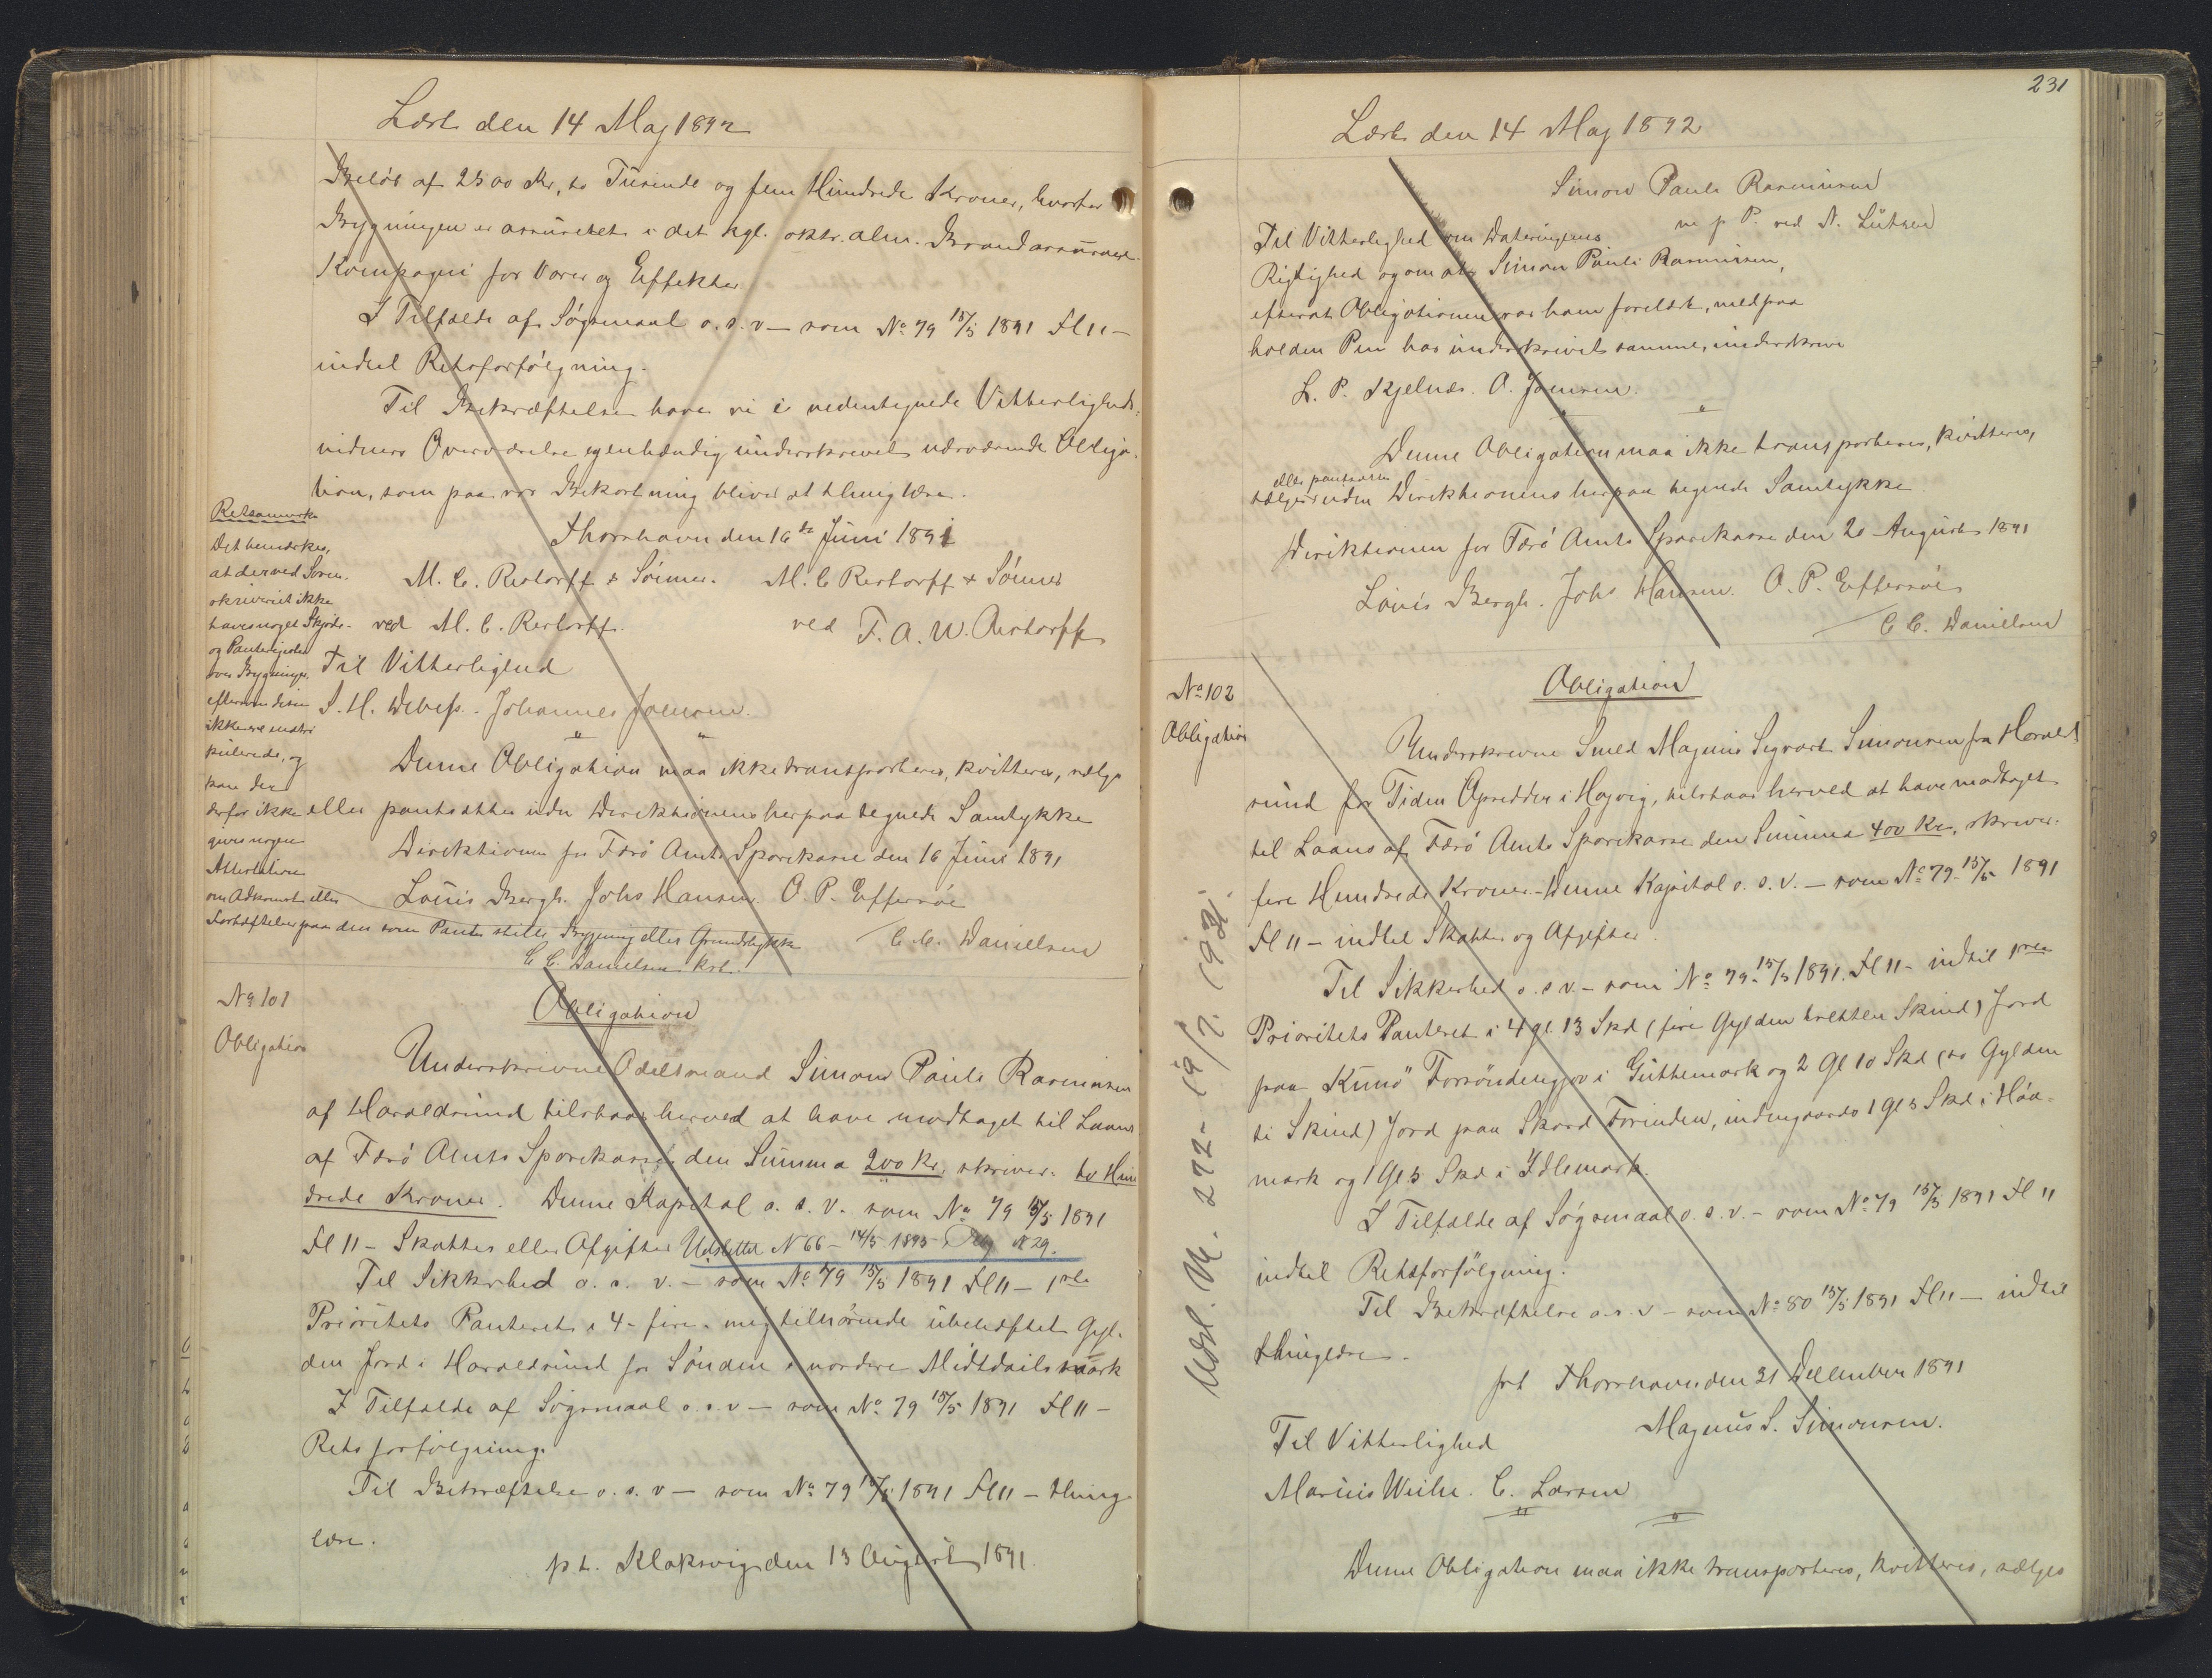 Læst den 14 Maj 1892
Beløb af 2500 Kr, to Tusinde og fem Hundrede Kroner, hvorfor
Bygningen er assureret i det kgl. oktr. alm. Brandassurance
Kompagni for Varer og Effekter.
I Tilfælde af Søgsmaal o. s. v — som No 79 15/5 1891 Fl 11 —
indtil Retsforfølgning.
Til Bekræftelse have vi i nedentegnede Vitterligheds-
vidners Overværelse egenhændig underskrevet nærværende Obliga-
tion, som paa vor Bekostning bliver at thinglæse.
Thorshavn den 16de Juni 1891
M. C. Restorff & Sønner. M. C Restorff & Sønner
ved M. C. Restorff. ved F. A. W. Restorff
Til Vitterlighed
S. H. Debess. Johannes Joensen.
Denne Obligation maa ikke transporteres, kvitteres, sælges
eller pantsættes uden Direktionens herpaa tegnede Samtykke
Direktionen for Færø Amts Sparekasse den 16 Juni 1891
Louis Bergh. Johs Hansen. O. P. Effersøe
C. C. Danielsen
Retsanmærk
Det bemærkes,
at der ved Soren-
skriveriet ikke
haves noget Skjøde-
og Panteregister
over Bygninger,
eftersom disse
ikke ere matri
kulerede, og
kan der
derfor ikke
gives nogen
Attestation
om Adkomst eller
Forhæftelser paa den som Pant stillede Bygning eller Grundstykke
C C. Danielsen kst.
No 101
Obligation
Obligation
Underskrevne Odelsmand Simon Pauli Rasmussen
af Haraldsund tilstaar herved at have modtaget til Laans
af Færø Amts Sparekasse den Summa 200 Kr. skriver. to Hun
drede Kroner. Denne Kapital o. s. v. som No 79 15/5 1891
Fl 11 — Skatter eller Afgifter Udslettet N 66 - 14/5 1895 N 29.
Til Sikkerhed o. s. v. — som No 79 15/5 1891 Fl 11 — 1ste
Prioritets Panteret i 4 - fire - mig tilhørende ubehæftet Gyl-
den Jord i Haraldsund for Sønden i nordere Midtdails mark
I Tilfælde af Søgsmaal o. s. v — som No 79 15/5 1891 Fl 11 —
Retsforfølgning.
Til Bekræftelse o. s. v — som No 79 15/5 1891 Fl 11 — thing
læse.
p t. Klaksvig den 13 August 1891.
231
Læst den 14 Maj 1892
Simon Pauli Rasmussen
m p P. ved N. Lützen
Til Vitterlighed om Dateringens
Rigtighed og om at Simon Pauli Rasmussen,
efterat Obligationen var ham forelæst, med paa
holden Pen har underskrevet samme, underskrive
L. P. Kjelnæs. O. Joensen.
Denne Obligation maa ikke transporteres, kvitteres,
eller pantsættes
sælges uden Direktionens herpaa tegnede Samtykke
Direktionen for Færø Amts Sparekasse den 20 August 1891
Louis Bergh. Johs Hansen. O. P. Effersøe
C C. Danielsen
No 102
Obligation
Obligation
Underskrevne Smed Magnus Sigvart Simonsen fra Harald-
sund for Tiden Opsidder i Hojvig, tilstaar herved at have modtaget
til Laans af Færø Amts Sparekasse den Summa 400 Kr, skriver.
fire Hundrede Kroner. - Denne Kapital o. s. v. — som No 79. 15/5 1891
Fl 11 — indtil Skatter og Afgifter.
Til Sikkerhed o. s v — som No 79. 15/5 1891. Fl 11 — indtil 1ste
Prioritets Panteret i 4 gl. 13 Skd (fire Gylden tretten Skind) Jord
paa "Kunø" i Guttemark og 2 Gl 10 Skd (to Gylden
ti Skind) Jord paa Skard Forinden, indengaards 1 Gl 5 Skd i Háa-
mark og 1 Gl 5 Skd i Idlemark.
I Tilfælde af Søgsmaal o. s. v. — som No 79 15/5 1891 Fl 11
indtil Retsforfølgning.
Til Bekræftelse o. s. v — som No 80 15/5 1891 Fl 11 — indtil
thinglæse.
pt Thorshavn den 21 December 1891
Magnus S. Simonsen.
Til Vitterlighed
Marius Weihe. C. Larsen
Denne Obligation maa ikke transporteres, kvitteres, sælges
Udsl. M. 272 - 19/7. 193